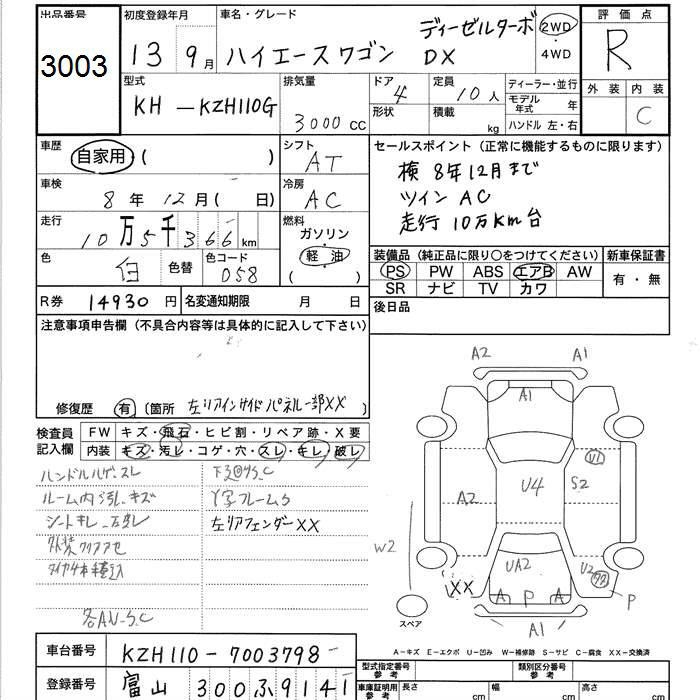 出品番号 初度登録年月 車名・グレード 評価点
3003 13 9月 ハイエースワゴン ディーゼルターボ DX 2WD・4WD R
型式 排気量 ドア 定員 ディーラー・並行 外装 内装
KH-KZH110G 3000cc 4 10人 モデル年式 年 C
形状 積載 kg ハンドル 左・右
車歴 自家用・( ) シフト AT
セールスポイント(正常に機能するものに限ります)
検 8年12月まで
ツインAC
走行10万Km台
車検 8年12月( 日) 冷房 AC
走行 10万5千366km 燃料 ガソリン・軽油・( )
色 白 色替 色コード 058
装備品(純正品に限り○をつけてください) 新車保証書
PS PW ABS エアB AW 有・無
SR ナビ TV カワ
R券 14930円 名変通知期限 月 日 後日品
注意事項申告欄(不具合内容等は具体的に記入して下さい)
修復歴 有 〔箇所 左リアインサイドパネル一部XX 〕
検査員記入欄 FW キズ・飛石・ヒビ割・リペア跡・X要
内装 キズ・汚レ・コゲ・穴・スレ・キレ・破レ
ハンドルハゲ.スレ
ルーム内汚レ.キズ
シートキレ
左リアフェンダーXX
各AN-S.C
A2 A1
A1
U1
A2 U4 S2
W2
UA2 U2
XX A P A P
スペア A1
A-キズ E-エクボ U-凹み W-補修跡 S-サビ C-腐食 XX-交換済
車台番号 KZH110-7003798
型式指定番号 参考 類別区分番号 参考
登録番号 富山 300ふ9141
車庫証明用参考 長さ cm 幅 cm 高さ cm